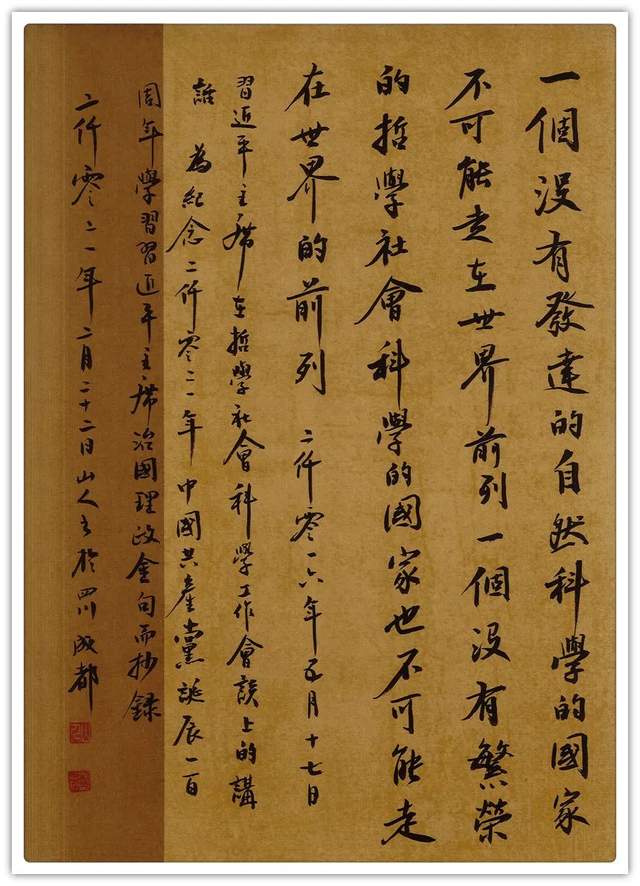 一個沒有發達的自然科學的國家
不可能走在世界前列一個沒有繁榮
的哲學社會科學的國家也不可能走
在世界的前列 二仟零一六年五月十七日
習近平主席在哲學社會科學工作會談上的講
話 為紀念二仟零二一年中國共產黨誕辰一百
周年學習習近平主席治國理政金句而抄錄
二仟零二一年二月二十二日山人書於四川成都